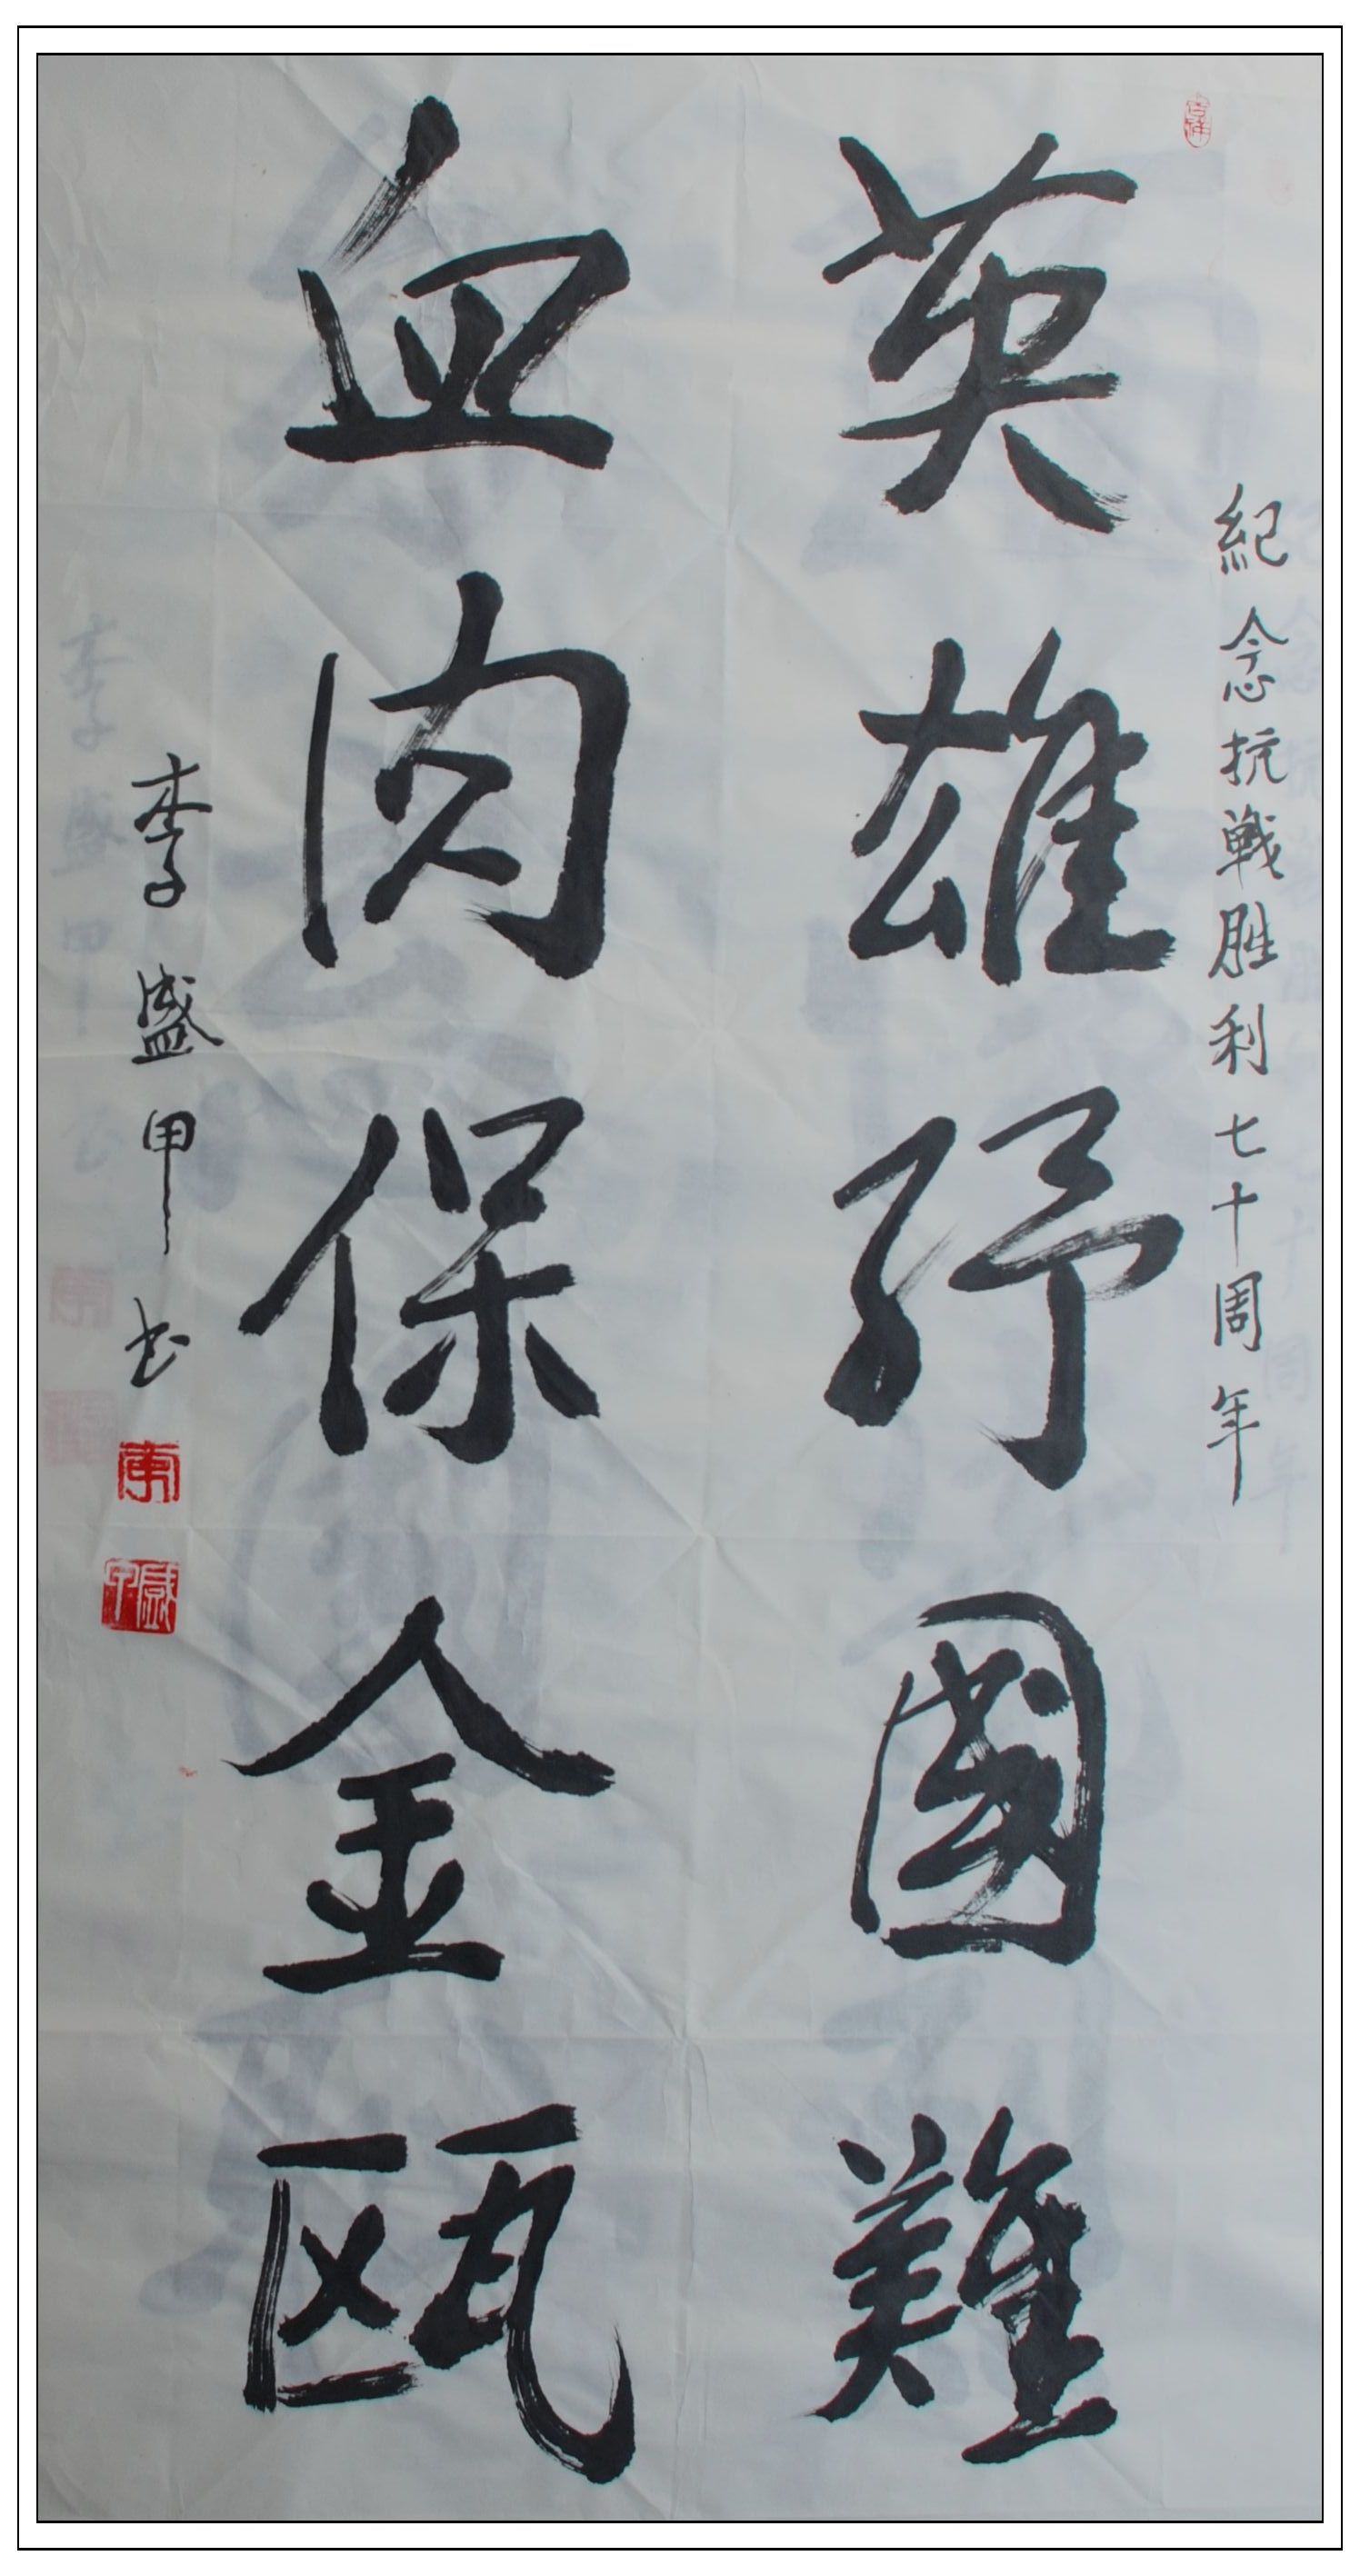 紀念抗戦胜利七十周年
英雄紓國難
血肉保金瓯
李盛甲书